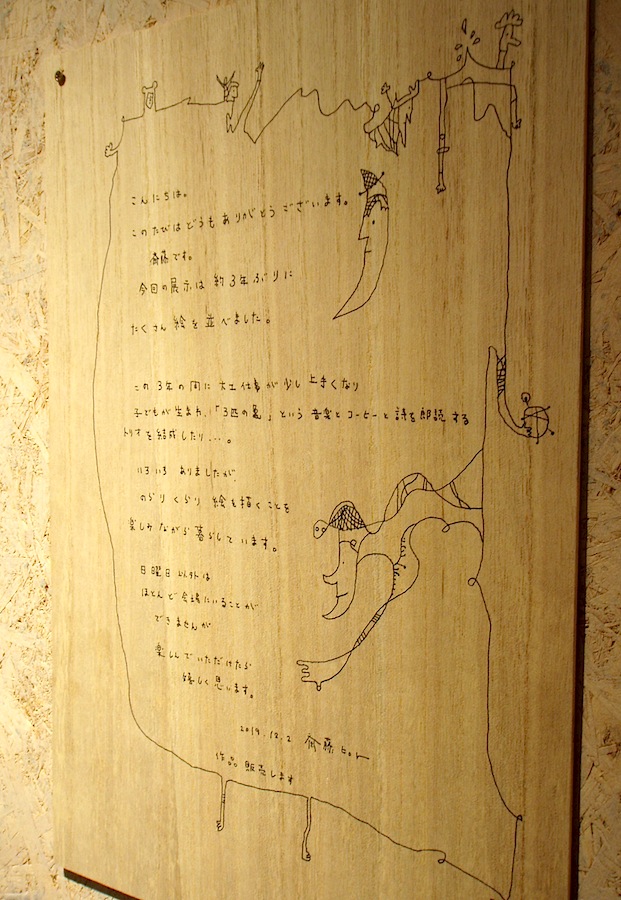 こんにちは。
このたびはどうもありがとうございます。
斉藤です。
今回の展示は約3年ぶりに
たくさん絵を並べました。
この3年の間に大工仕事が少し上手くなり
子どもが生まれ、「3匹の亀」という音楽とコーヒーと詩を朗読する
トリオを結成したり…。
いろいろありましたが、
のらりくらり絵も描くことを
楽しみながら暮らしています。
日曜日以外は
ほとんど会場にいることが
できませんが
楽しんでいただけたら
嬉しく思います。
2019.12.2 斉藤
作品販売します